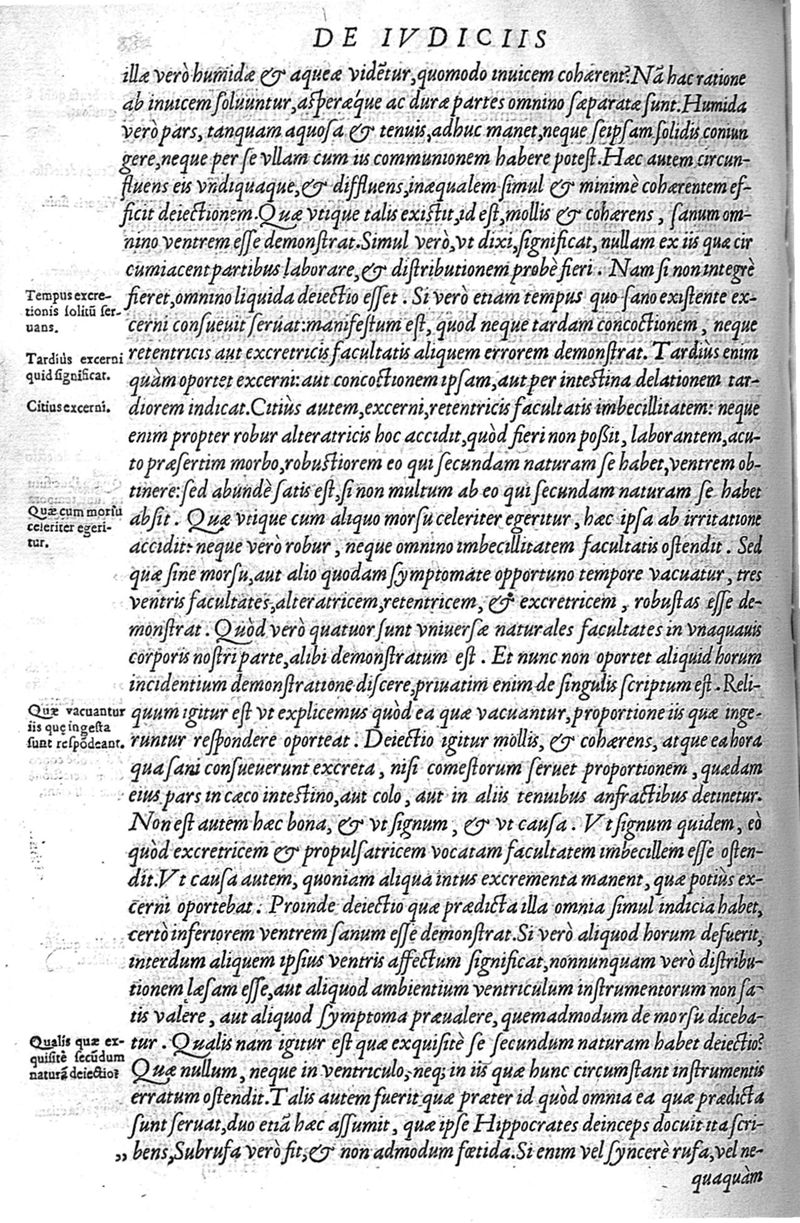 DE IVDICIIS
illæ verò humidæ & aqueæ vidẽtur, quomodo inuicem cohærent? Nã hac ratione
ab inuicem soluuntur, asperæq́ue ac duræ partes omnino sæparatæ sunt. Humida
verò pars, tanquam aquosa & tenuis, adhuc manet, neque seipsam solidis coniun
gere, neque per se vllam cum iis communionem habere potest. Hæc autem circun-
fluens eis vndiquaque, & diffluens, inæqualem simul & minimè cohærentem ef-
ficit deiectionem. Quæ vtique talis existit, id est, mollis & cohærens, sanum om-
nino ventrem esse demonstrat. Simul verò, vt dixi, significat, nullam ex iis quæ cir
cumiacent partibus laborare, & distributionem probè fieri. Nam si non integrè
Tempus excre-
tionis solitũ ser-
uans.
fieret, omnino liquida deiectio esset. Si verò etiam tempus quo sano existente ex-
cerni consueuit seruat: manifestum est, quod neque tardam concoctionem, neque
Tardius excerni
quid significat.
retentricis aut excretricis facultatis aliquem errorem demonstrat. Tardiùs enim
quàm oportet excerni: aut concoctionem ipsam, aut per intestina delationem tar-
Citius excerni.
diorem indicat. Citiùs autem, excerni, retentricis facultatis imbecillitatem: neque
enim propter robur alteratricis hoc accidit, quòd fieri non poßit, laborantem, acu-
to præsertim morbo, robustiorem eo qui secundam naturam se habet, ventrem ob-
tinere: sed abundè satis est, si non multum ab eo qui secundam naturam se habet
Quæ cum morsu
celeriter egeri-
tur.
absit. Quæ vtique cum aliquo morsu celeriter egeritur, hæc ipsa ab irritatione
accidit: neque verò robur, neque omnino imbecillitatem facultatis ostendit. Sed
quæ sine morsu, aut alio quodam symptomate opportuno tempore vacuatur, tres
ventris facultates, alteratricem, retentricem, & excretricem, robustas esse de-
monstrat. Quòd verò quatuor sunt vniuersæ naturales facultates in vnaquauis
corporis nostri parte, alibi demonstratum est. Et nunc non oportet aliquid horum
incidentium demonstratione discere, priuatim enim de singulis scriptum est. Reli-
Quæ vacuantur
iis quę ingesta
sunt respõdeant.
quum igitur est vt explicemus quòd ea quæ vacuantur, proportione iis quæ inge-
runtur respondere oporteat. Deiectio igitur mollis, & cohærens, atque ea hora
qua sani consueuerunt excreta, nisi comestorum seruet proportionem, quædam
eius pars in cæco intestino, aut colo, aut in aliis tenuibus anfractibus detinetur.
Non est autem hæc bona, & vt signum, & vt causa. Vt signum quidem, eò
quòd excretricem & propulsatricem vocatam facultatem imbecillem esse osten-
dit. Vt causa autem, quoniam aliqua intus excrementa manent, quæ potiùs ex-
cerni oportebat. Proinde deiectio quæ prædicta illa omnia simul indicia habet,
certò inferiorem ventrem sanum esse demonstrat. Si verò aliquod horum defuerit,
interdum aliquem ipsius ventris affectum significat, nonnunquam verò distribu-
tionem læsam esse, aut aliquod ambientium ventriculum instrumentorum non sa-
tis valere, aut aliquod symptoma præualere, quemadmodum de morsu diceba-
Qualis quæ ex-
quisitè secũdum
naturã deiectio?
tur. Qualis nam igitur est quæ exquisitè se secundum naturam habet deiectio?
Quæ nullum, neque in ventriculo, neq; in iis quæ hunc circumstant instrumentis
erratum ostendit. Talis autem fuerit quæ præter id quòd omnia ea quæ prædicta
sunt seruat, duo etiã hæc assumit, quæ ipse Hippocrates deinceps docuit ita scri-
„ bens, Subrufa verò sit, & non admodum fœtida. Si enim vel syncerè rufa, vel ne-
quaquàm